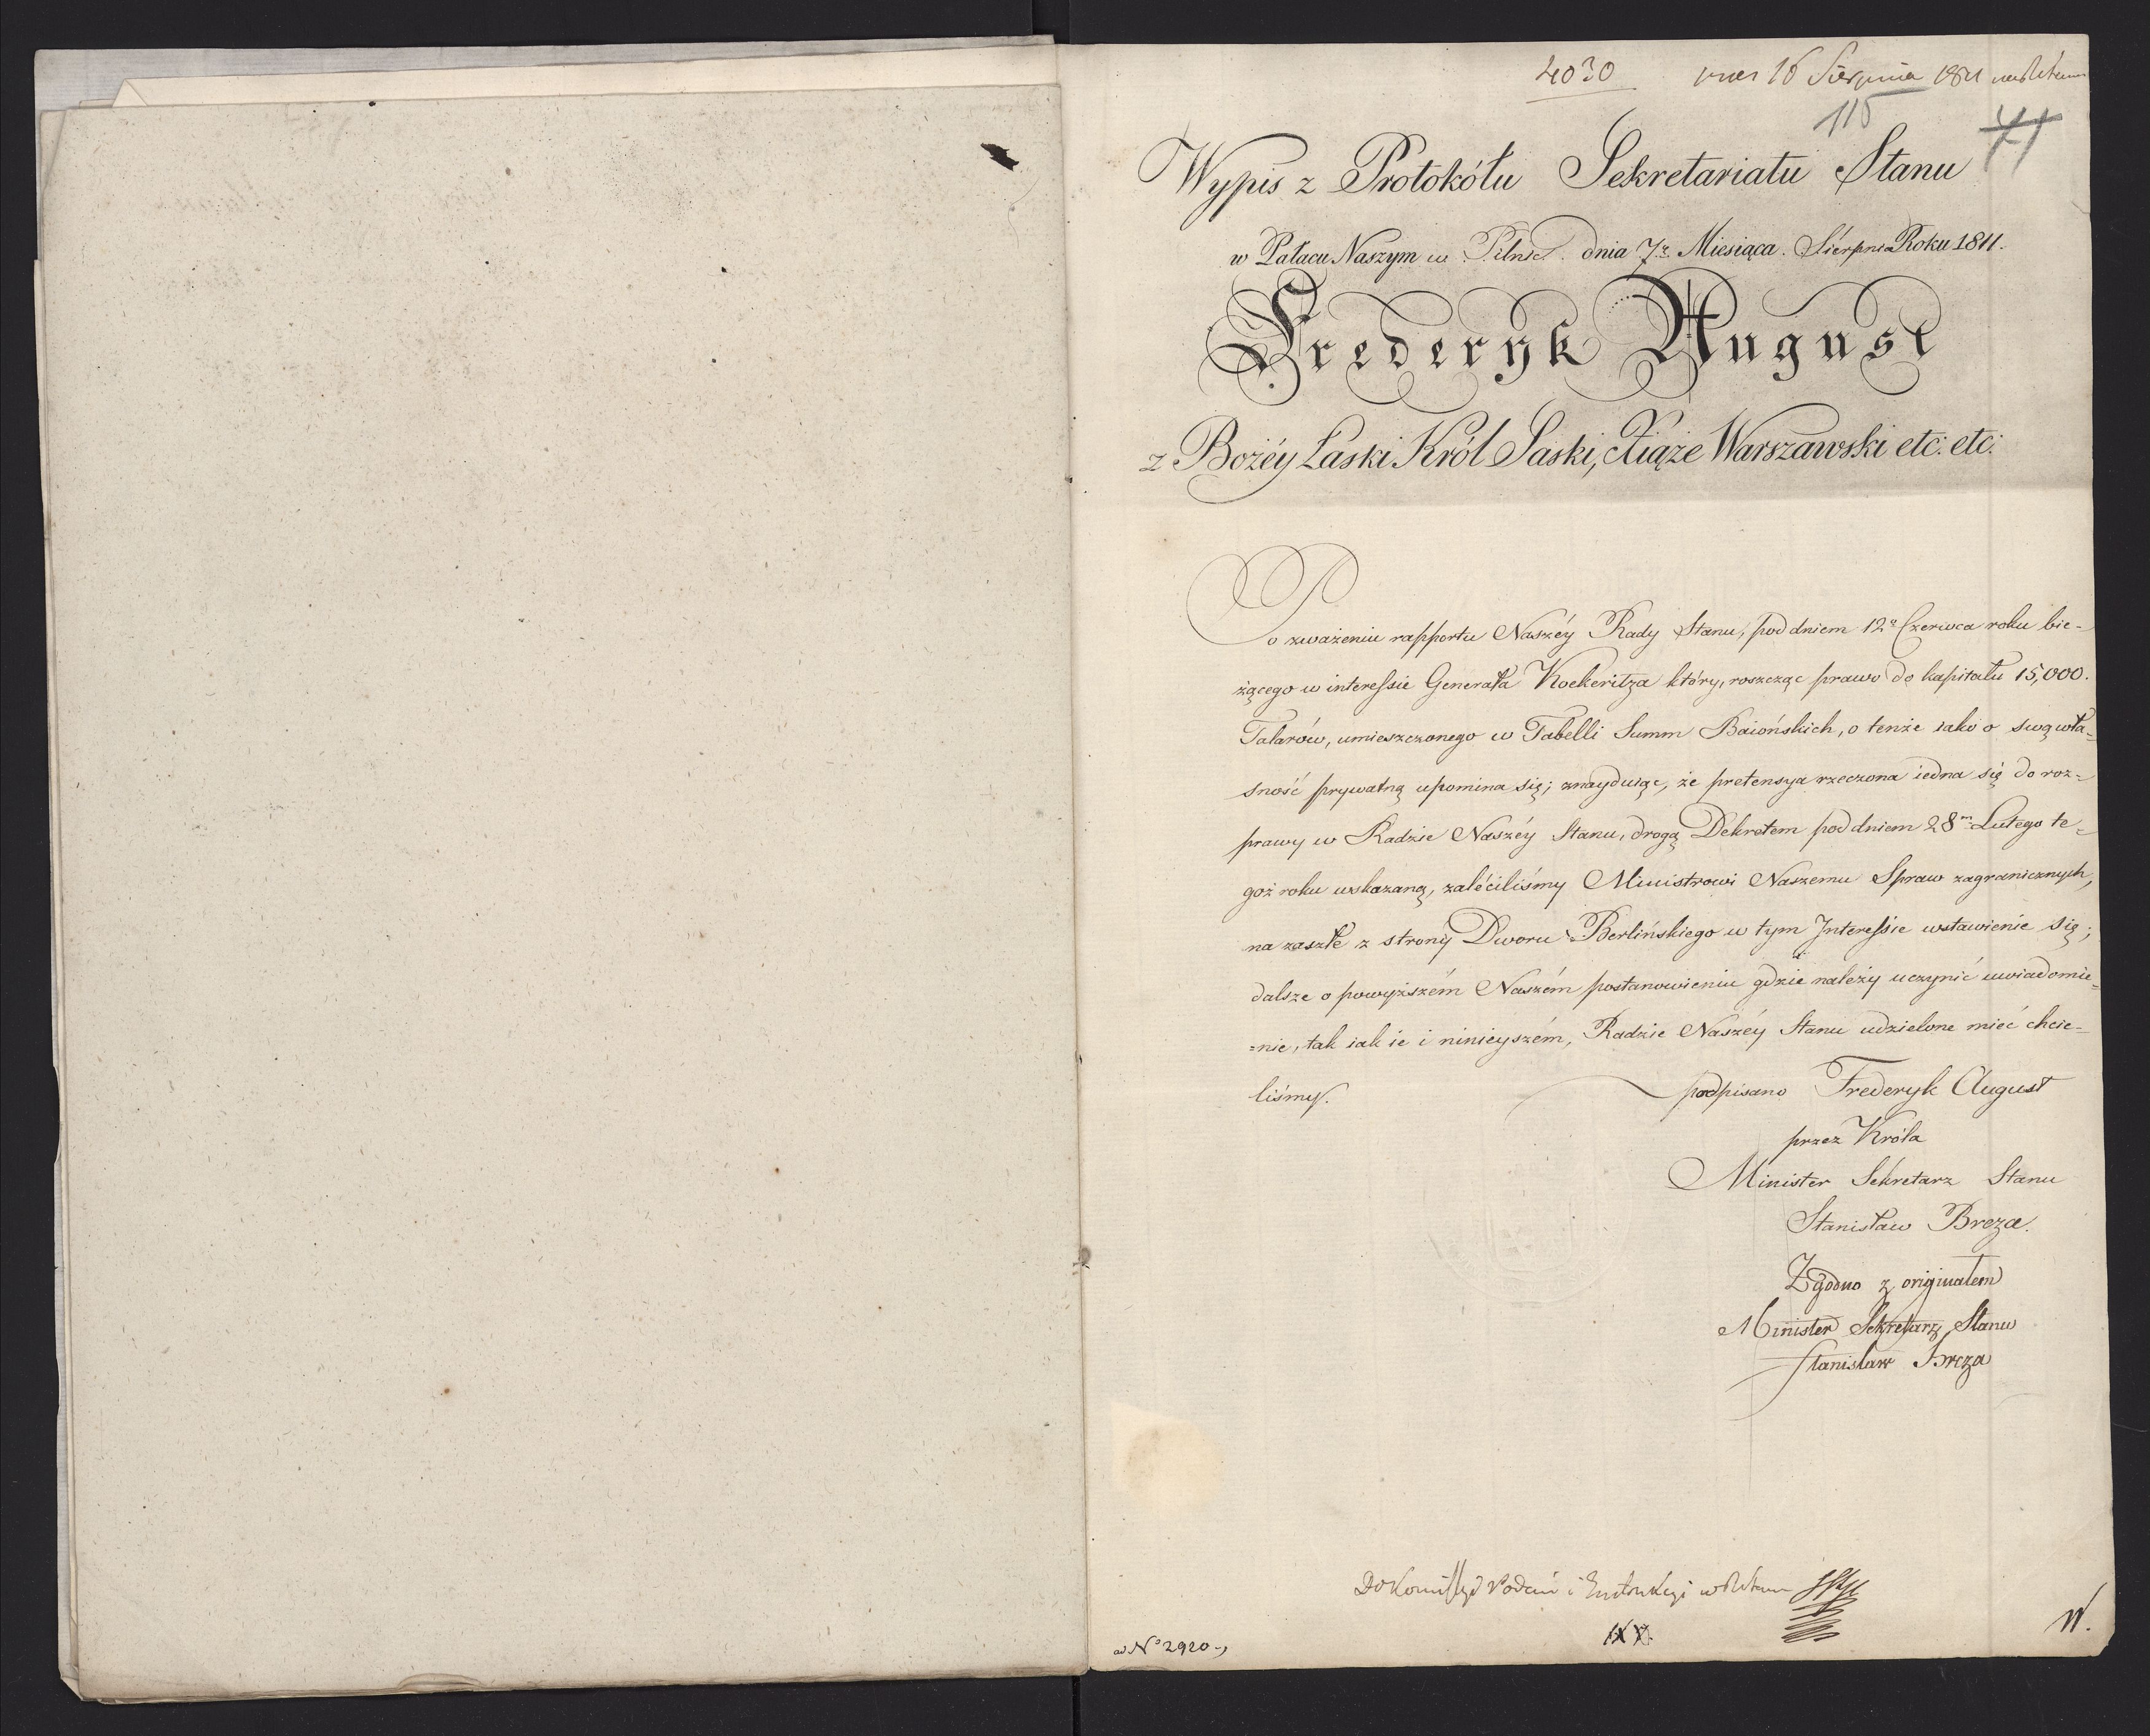 4030
16 Sierpnia 1811
115
71
Wypis z Protokółu Sekretariatu Stanu
w Pałacu Naszym w Pilnic dnia 7º Miesiąca Sierpnia Roku 1811.
Frederyk August
z Bożéy Łaski Król Saski, Xiąże Warszawski etc: etc:
Po zważeniu rapportu Naszéy Rady Stanu, pod dniem 12º Czerwca roku bie-
żącego w interessie Generała Koekeritza który, roszcząc prawo do kapitału 15,000.
Talarów, umieszczonego w Tabelli Summ Baiońskich, o tenże iako o swą wła-
sność prywatną upomina się; znayduiąc, że pretensya rzeczona iedna się do roz-
prawy w Radzie Naszéy Stanu, drogą Dekretem pod dniem 28m Lutego te-
goż roku wskazaną, zaléciliśmy Ministrowi Naszemu Spraw zagranicznych,
na zaszłe z strony Dworu Berlińskiego w tym Interessie wstawienie się;
dalsze o powyższém Naszém postanowieniu gdzie należy uczynić uwiadomie-
=nie, tak iak ie i ninieyszém, Radzie Naszéy Stanu udzielone mieć chcie-
liśmy.
podpisano Frederyk August
przez Króla
Minister Sekretarz Stanu
Stanisław Breza.
Zgodno z originałem
Minister Sekretarz Stanu
Stanisław Breza
Do Kommissyi Podań i Instrukcyi
ad Nº 2920